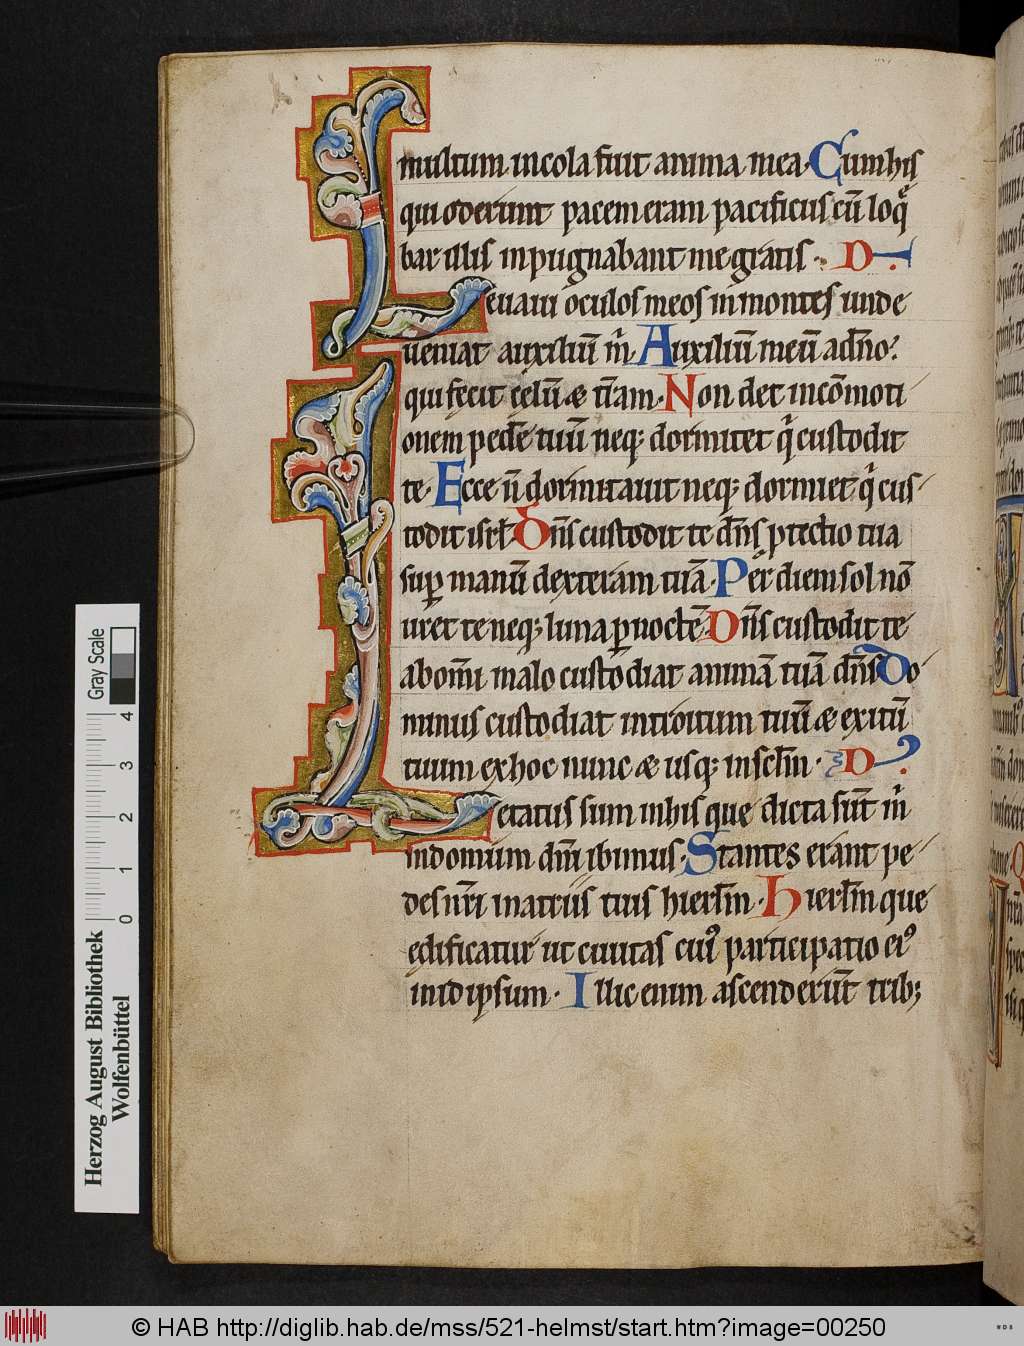 multum incola fuit anima mea. Cum his
qui oderunt pacem eram pacificus cū loq̄
bar illis inpugnabant me gratis. D.
Leuaui oculos meos in montes unde
ueniat auxiliū m̄. Auxiliū meū a dn̄o.
qui fecit celū æ tr̄am. Non det in cōmoti
onem pedē tuū neq; dormitet q̄ custodit
te. Ecce n̄ dormitauit neq; dormiet q̄ cus-
todit isrl̄. Dn̄s custodit te dn̄s ꝓtectio tua
suꝑ manū dexteram tuā. Per diem sol nō
uret te neq; luna ꝑ noctē. Dn̄s custodit te
ab om̄i malo custodiat animā tuā dn̄s Do
minus custodiat introitum tuū æ exitū
tuum ex hoc nunc æ usq; in sclm̄. D.
Letatus sum in his que dicta sūt m̄
in domum dn̄i ibimus. Stantes erant pe-
des nr̄i in atriis tuis hierlm̄. Hierlm̄ que
edificatur ut ciuitas cui᾿ participatio ei᾿
in id ipsum. Illic enim ascenderūt trib;
Gray Scale
4 3 2 1 0
Herzog August Bibliothek
Wolfenbüttel
© HAB http://diglib.hab.de/mss/521-helmst/start.htm?image=00250